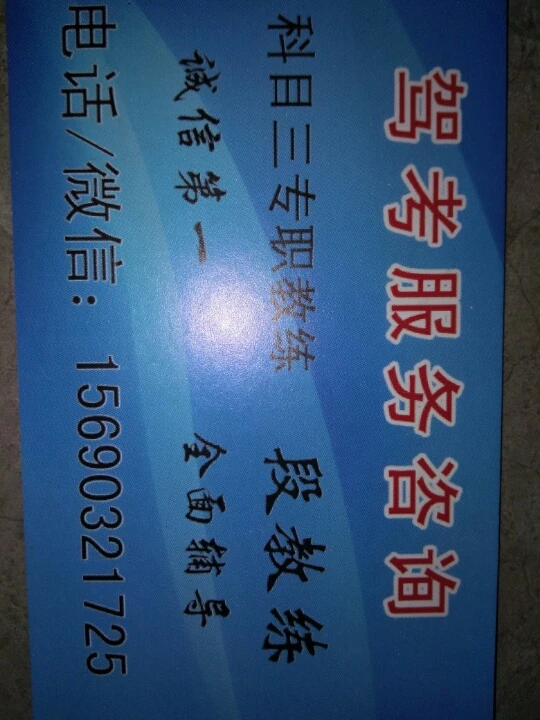 驾考服务咨询
科目三专职教练 段教练
诚信第一 全面辅导
电话/微信：15690321725